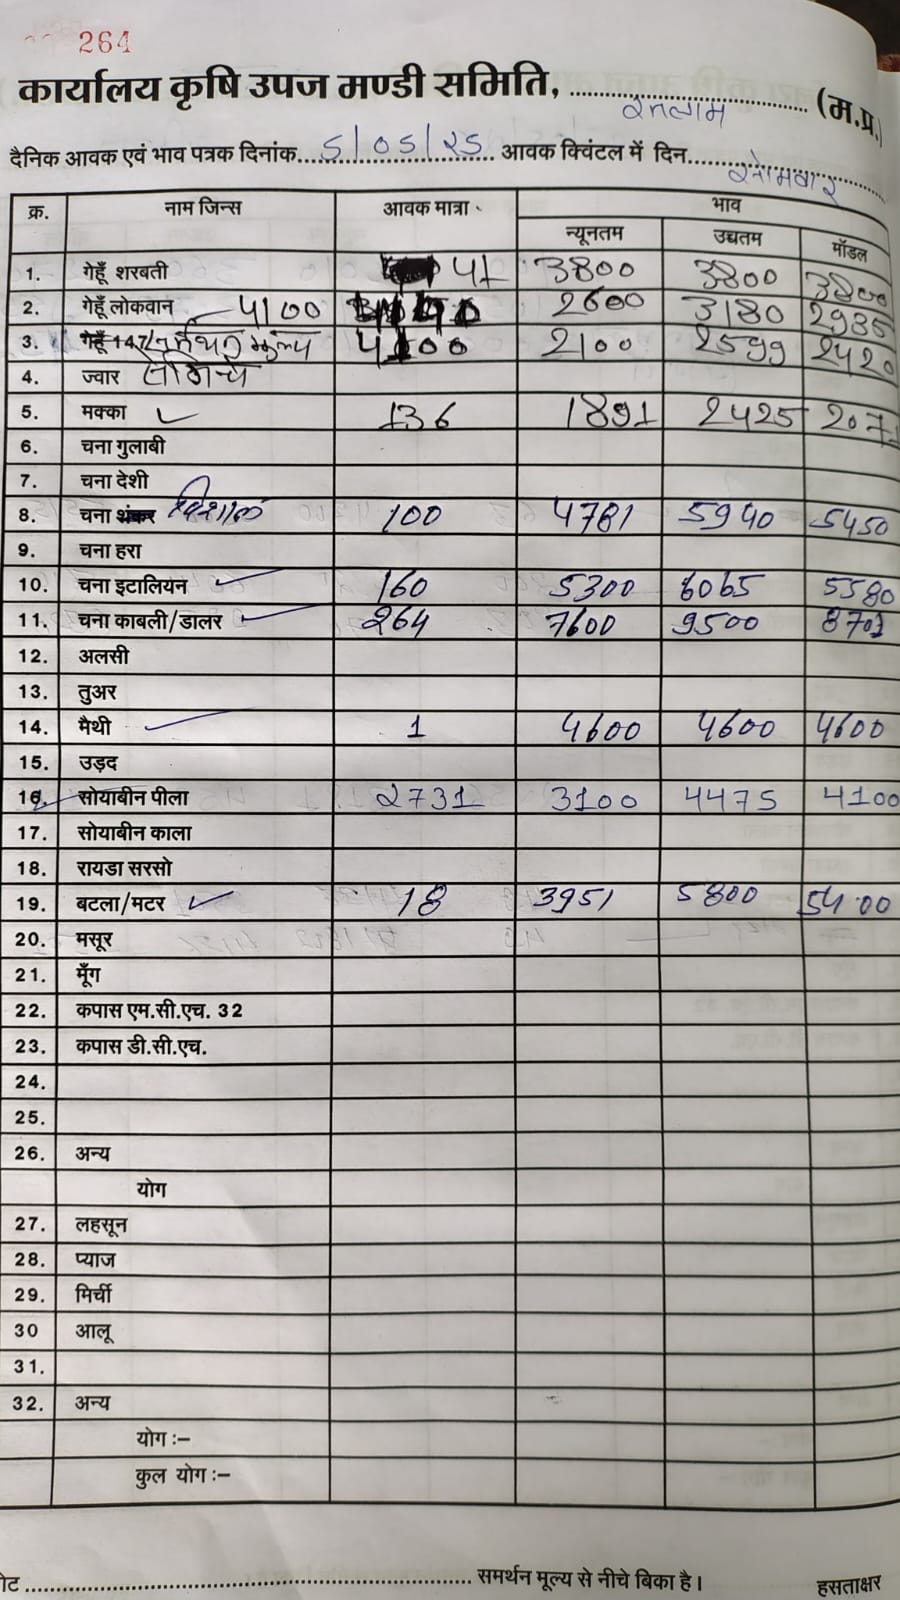 264
कार्यालय कृषि उपज मण्डी समिति, रतलाम (म.प्र.)
दैनिक आवक एवं भाव पत्रक दिनांक 5/05/25 आवक क्विंटल में दिन सोमवार
क्र. नाम जिन्स आवक मात्रा भाव
न्यूनतम उच्चतम मॉडल
1. गेहूँ शरबती 41 3800 3800 3800
2. गेहूँ लोकवान 4100 2600 3180 2935
3. गेहूँ 147 समर्थन मूल्य 2100 2599 2420
4. ज्वार से नीचे
5. मक्का 136 1891 2425 2071
6. चना गुलाबी
7. चना देशी
8. चना शंकर विशाल 100 4781 5940 5450
9. चना हरा
10. चना इटालियन 160 5300 6065 5580
11. चना काबली/डालर 264 7600 9500 8701
12. अलसी
13. तुअर
14. मैथी 1 4600 4600 4600
15. उड़द
16. सोयाबीन पीला 2731 3100 4475 4100
17. सोयाबीन काला
18. रायडा सरसो
19. बटला/मटर 18 3951 5800 5400
20. मसूर
21. मूँग
22. कपास एम.सी.एच. 32
23. कपास डी.सी.एच.
24.
25.
26. अन्य
योग
27. लहसून
28. प्याज
29. मिर्ची
30 आलू
31.
32. अन्य
योग :–
कुल योग :–
समर्थन मूल्य से नीचे बिका है।
हसताक्षर